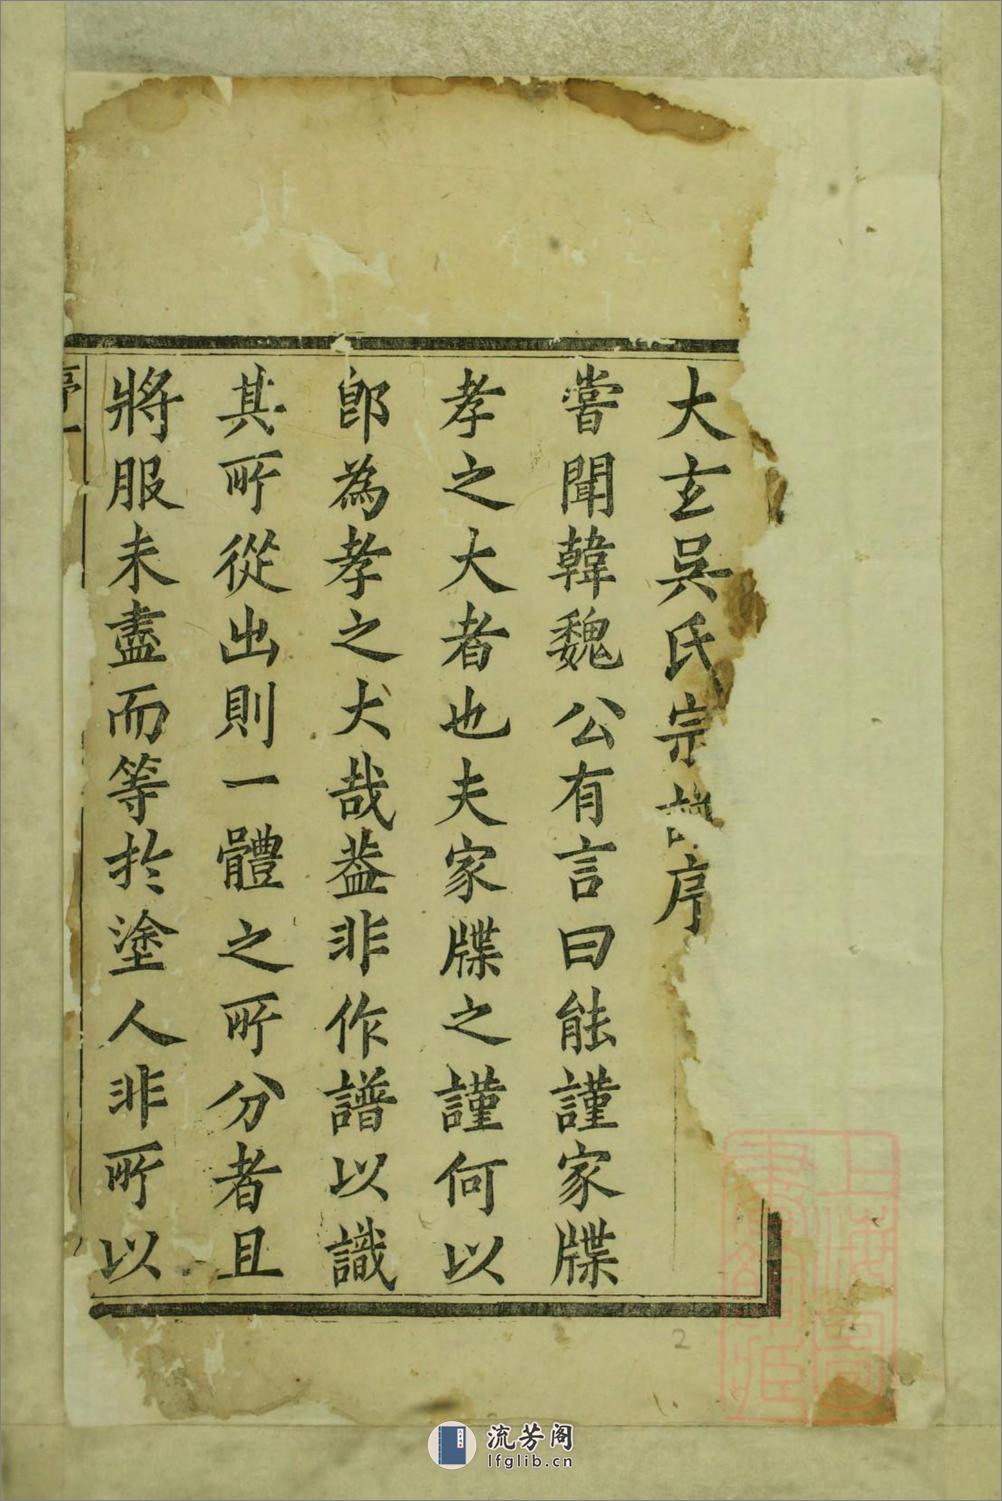 大玄吳氏宗譜序
嘗聞韓魏公有言曰能謹家牒
孝之大者也夫家牒之謹何以
郎為孝之大哉葢非作譜以識
其所從出則一體之所分者且
將服未盡而等於塗人非所以
序一
上海圖書館藏
2
流芳阁
lfglib.cn